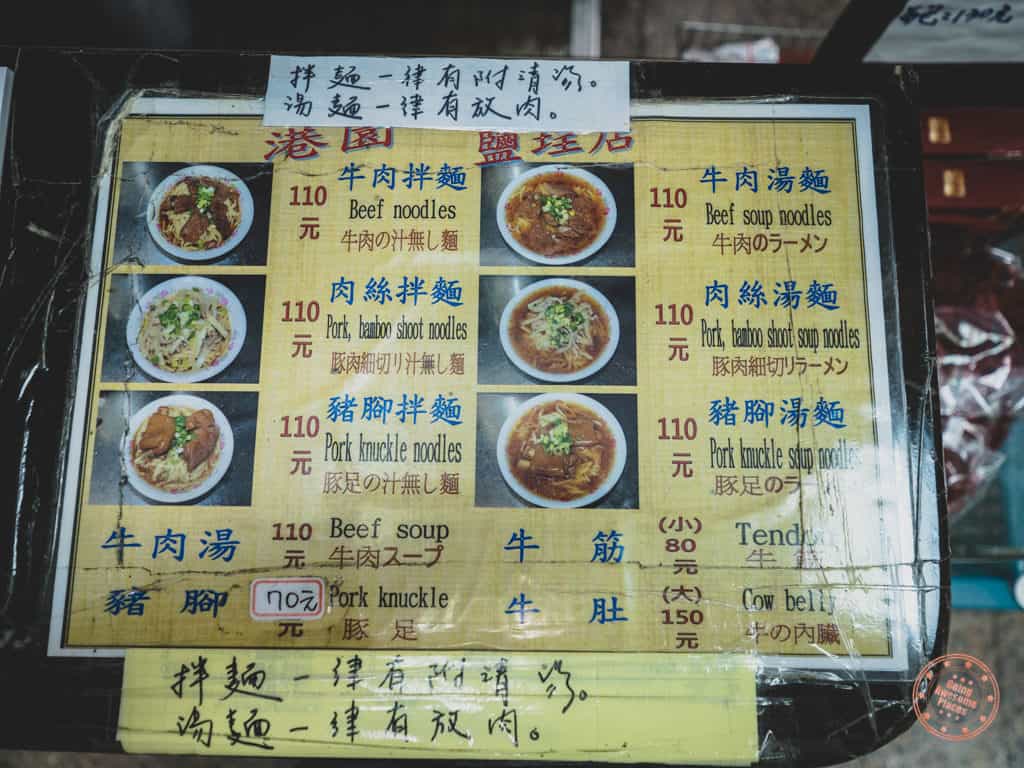 拌麵一律有附清湯。
湯麵一律有放肉。
港園 鹽埕店
110元
牛肉拌麵
Beef noodles
牛肉の汁無し麵
110元
牛肉湯麵
Beef soup noodles
牛肉のラーメン
110元
肉絲拌麵
Pork, bamboo shoot noodles
豚肉細切り汁無し麵
110元
肉絲湯麵
Pork, bamboo shoot soup noodles
豚肉細切りラーメン
110元
豬腳拌麵
Pork knuckle noodles
豚足の汁無し麵
110元
豬腳湯麵
Pork knuckle soup noodles
豚足のラー
牛肉湯
110元
Beef soup
牛肉スープ
豬腳
70元
元
Pork knuckle
豚足
牛筋
牛肚
(小)
80
元
(大)
150
元
Tendon
牛筋
Cow belly
牛の内臓
拌麵一律有附清湯。
湯麵一律有放肉。
Going Awesome Places